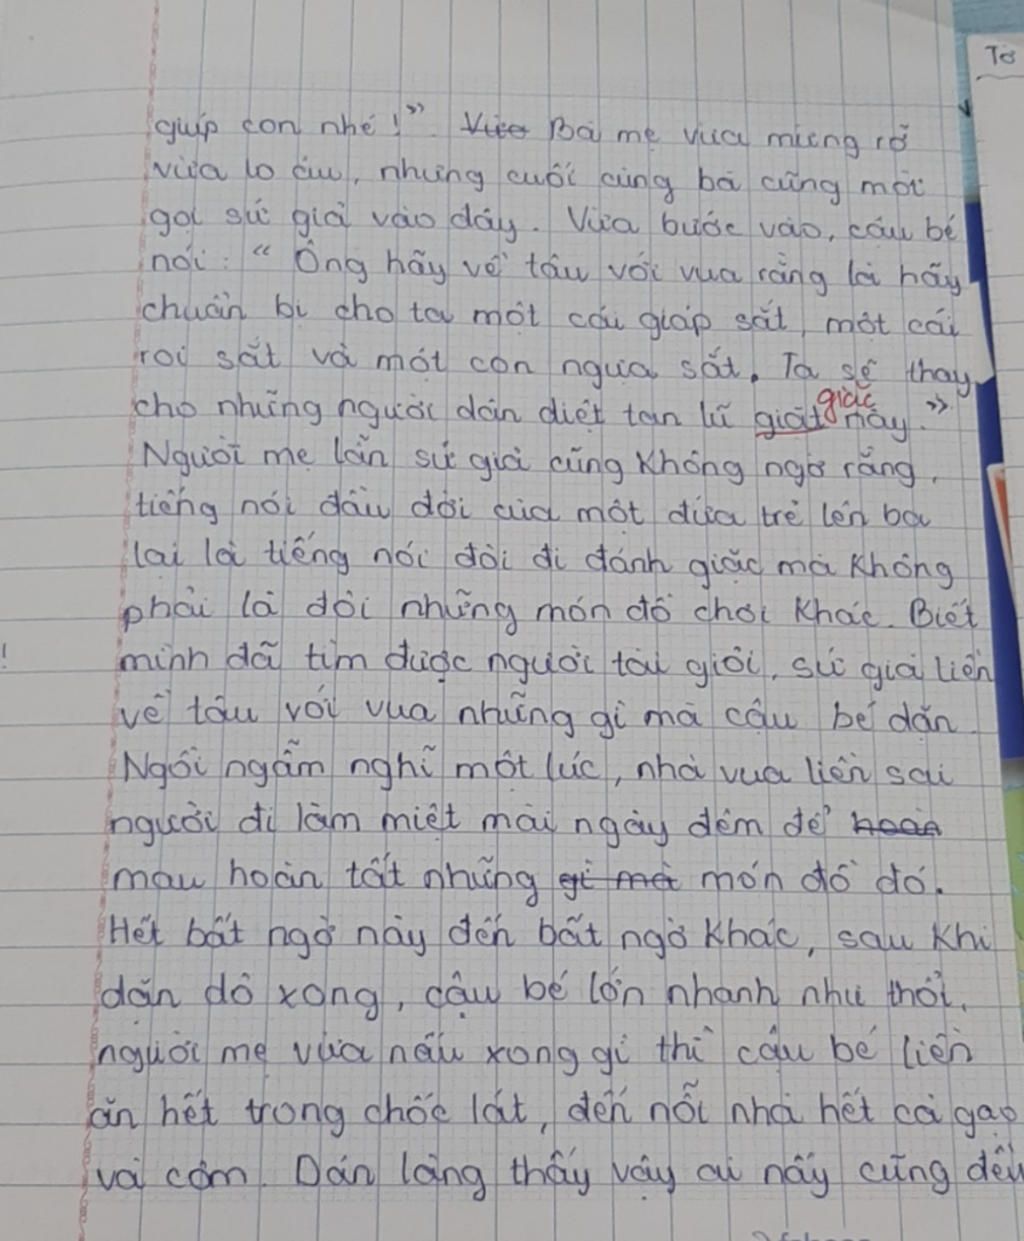 Tờ
giúp con nhé!". Việc Bà mẹ vừa mừng rỡ
vừa lo âu, nhưng cuối cùng bà cũng mời
gọi sứ giả vào đây. Vừa bước vào, cậu bé
nói: "Ông hãy về tâu với vua rằng là hãy
chuẩn bị cho ta một cái giáp sắt, một cái
roi sắt và một con ngựa sắt. Ta sẽ thay
cho những người dân diệt tan lũ giặt giặc này."
Người mẹ lẫn sứ giả cũng không ngờ rằng,
tiếng nói đầu đời của một đứa trẻ lên ba
lại là tiếng nói đòi đi đánh giặc mà không
phải là đòi những món đồ chơi khác. Biết
mình đã tìm được người tài giỏi, sứ giả liền
về tâu với vua những gì mà cậu bé dặn.
Ngồi ngẫm nghĩ một lúc, nhà vua liền sai
người đi làm miệt mài ngày đêm để hoàn
mau hoàn tất những gì mà món đồ đó.
Hết bất ngờ này đến bất ngờ khác, sau khi
dặn dò xong, cậu bé lớn nhanh như thổi,
người mẹ vừa nấu xong gì thì cậu bé liền
ăn hết trong chốc lát, đến nỗi nhà hết cả gạo
và cơm. Dân làng thấy vậy ai nấy cũng đều